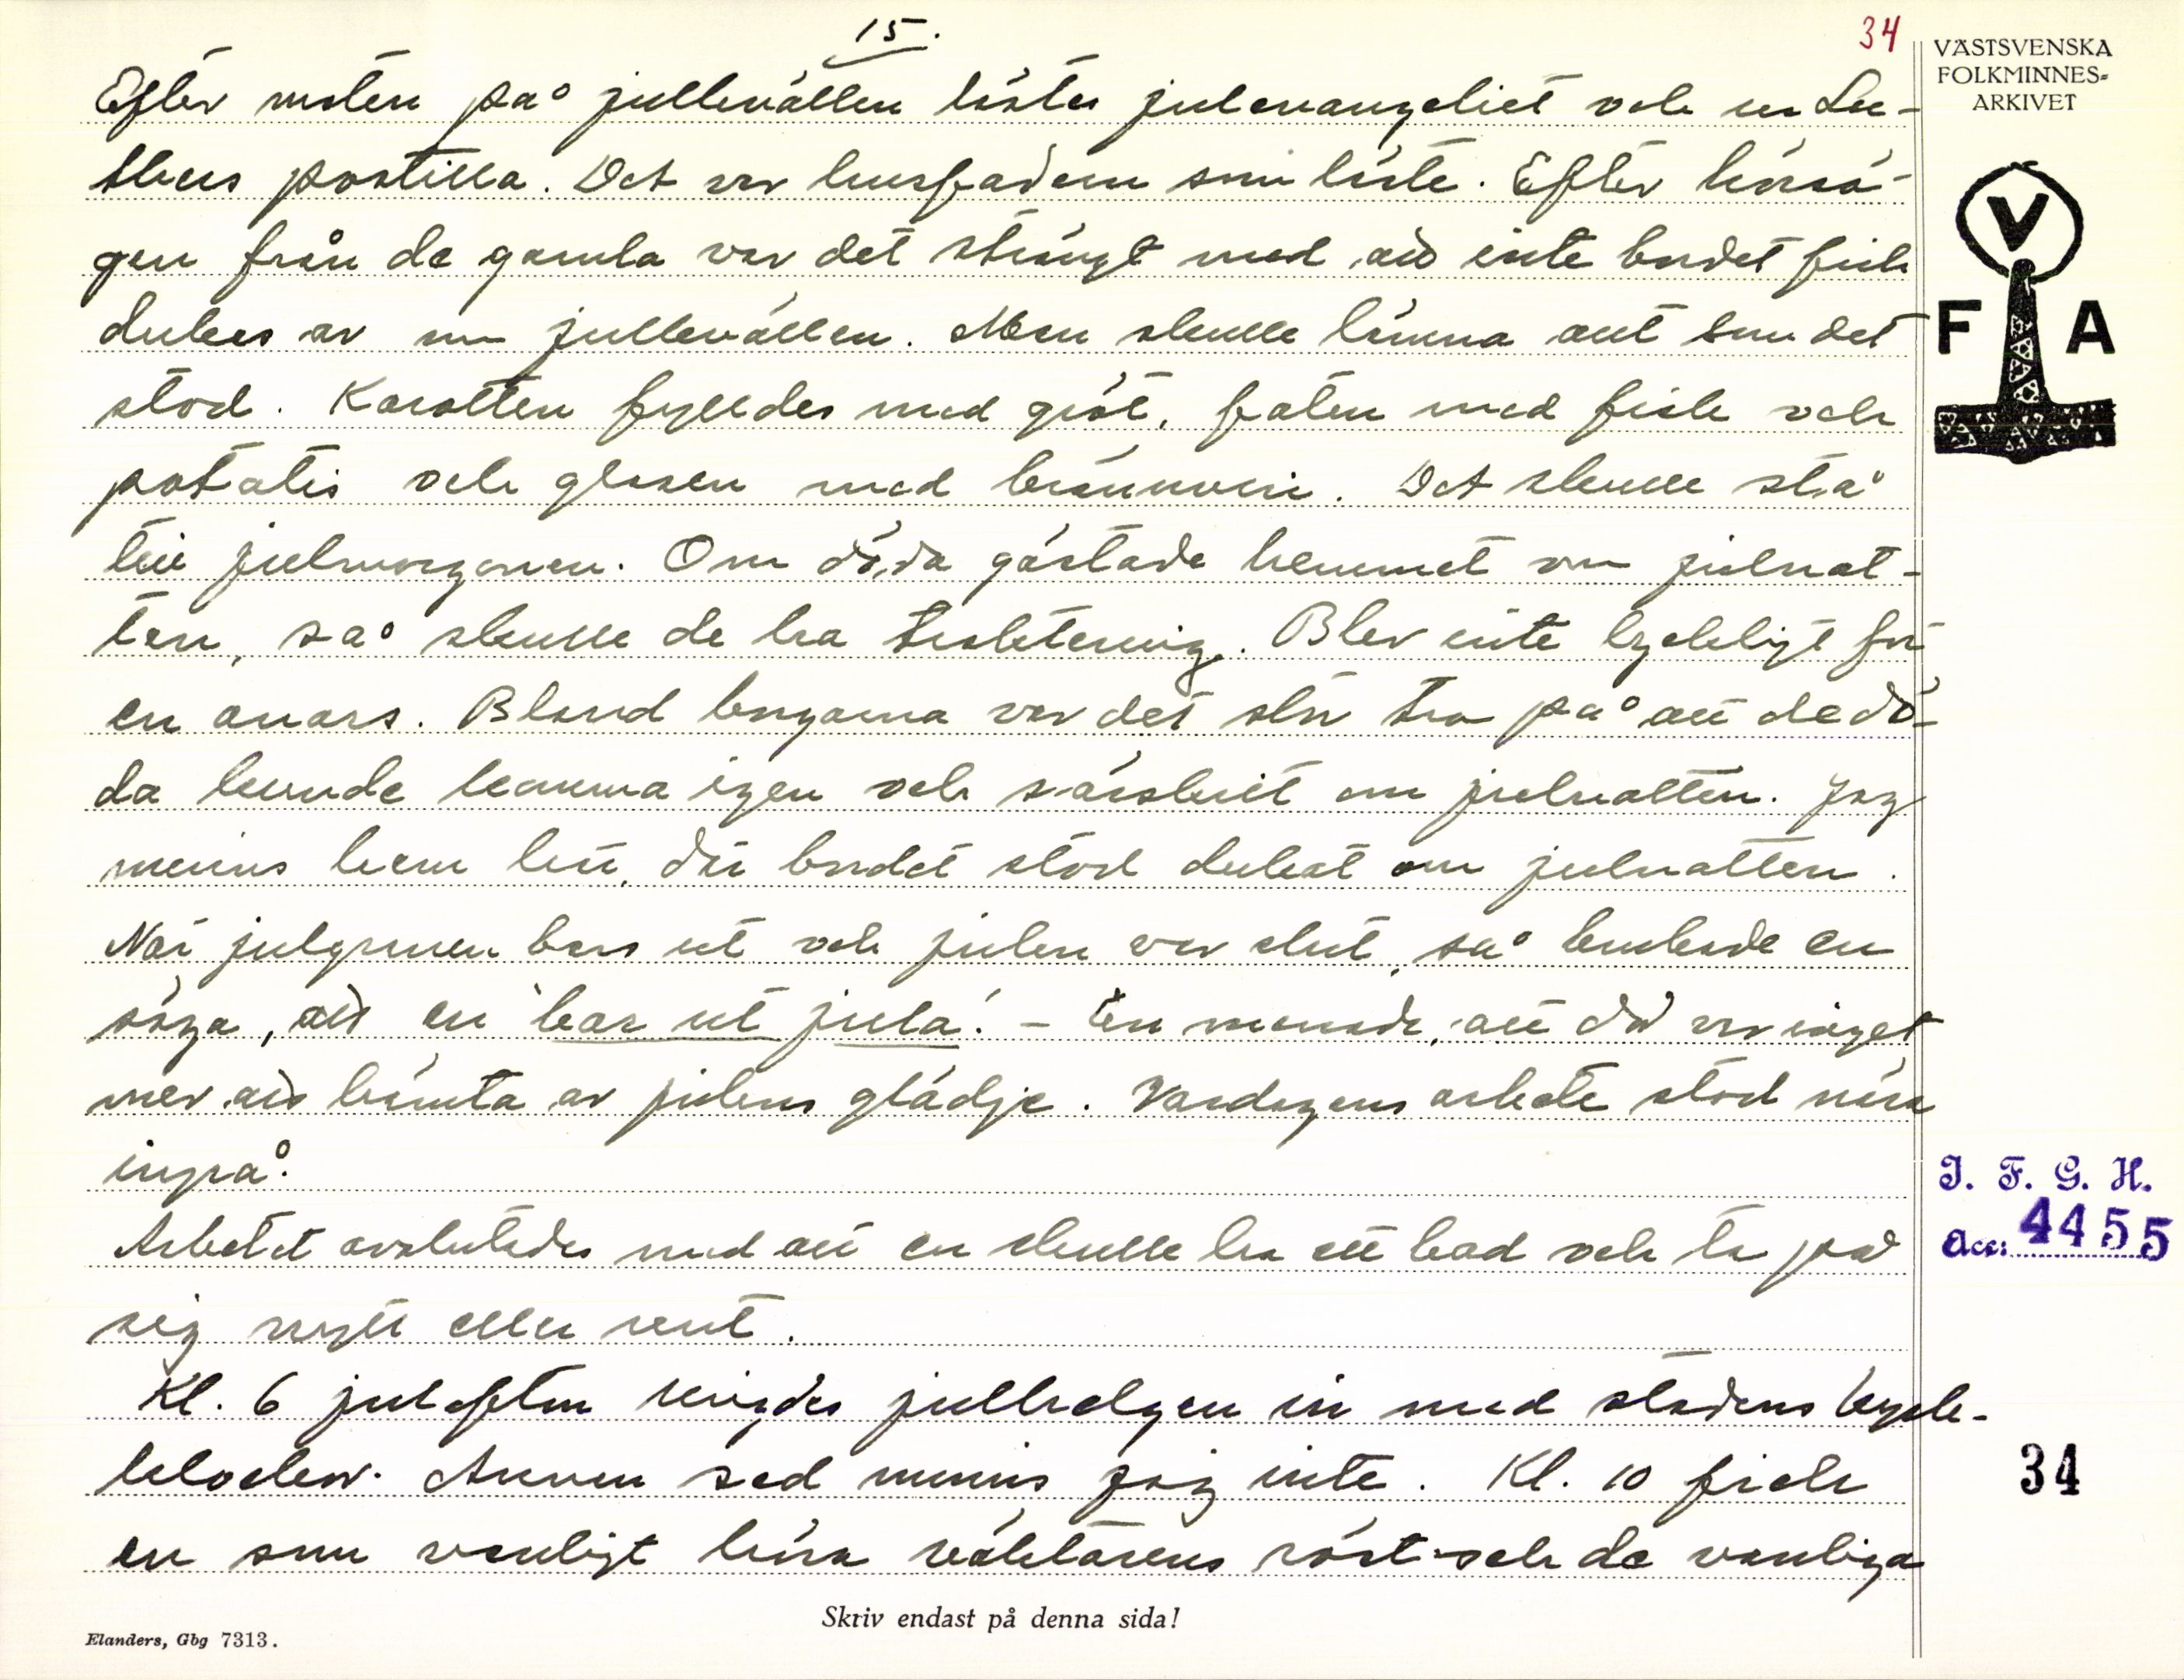 15.
34
VÄSTSVENSKA
FOLKMINNES-
ARKIVET
Efter maten på jullevällen lästes julevangeliet och ur Lu-
thers postilla. Det var husfadern som läste. Efter hörsä-
gen från de gamla var det strängt med att inte bordet fick
dukas av om jullevällen. Man skulle lämna allt som det
stod. Karotten fylldes med gröt, faten med fisk och
potatis och glasen med brännvin. Det skulle stå
till julmorgonen. Om döda gästade hemmet om julnat-
ten, så skulle de ha traktering. Blev inte lyckligt för
en anars. Bland borgarna var det stor tro på att de dö-
da kunde komma igen och särskilt om julnatten. Jag
minns hem till, där bordet stod dukat om julnatten.
När julgranen bars ut och julen var slut, så brukade en
säga, att en bar ut jula! - En menade, att då var inget
mer att hämta av julens glädje. Vardagens arbete stod nära
inpå.
Arbetet avslutades med att en skulle ha ett bad och ta på
sig nytt eller rent.
Kl. 6 julafton ringdes julhelgen in med stadens kyrk-
klockor. Annan sed minns jag inte. Kl. 10 fick
en som vanligt höra väktarens röst och de vanliga
V
F A
I. F. G. H.
Acc: 4455
34
Skriv endast på denna sida!
Elanders, Gbg 7313.